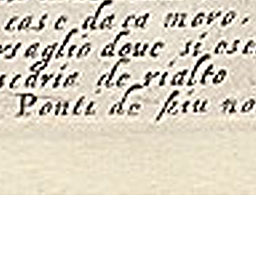 case da ca moro.
rsaglio doue si ese
caria de rialto
Ponti de piu no